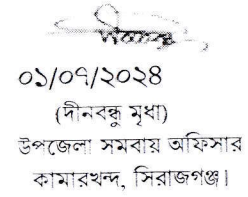 ০১/০৭/২০২৪
(দীনবন্ধু মৃধা)
উপজেলা সমবায় অফিসার
কামারখন্দ, সিরাজগঞ্জ।